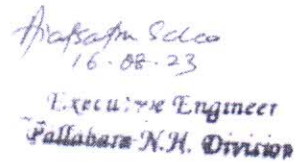 16-08-23
Executive Engineer
Pallahara N.H. Division